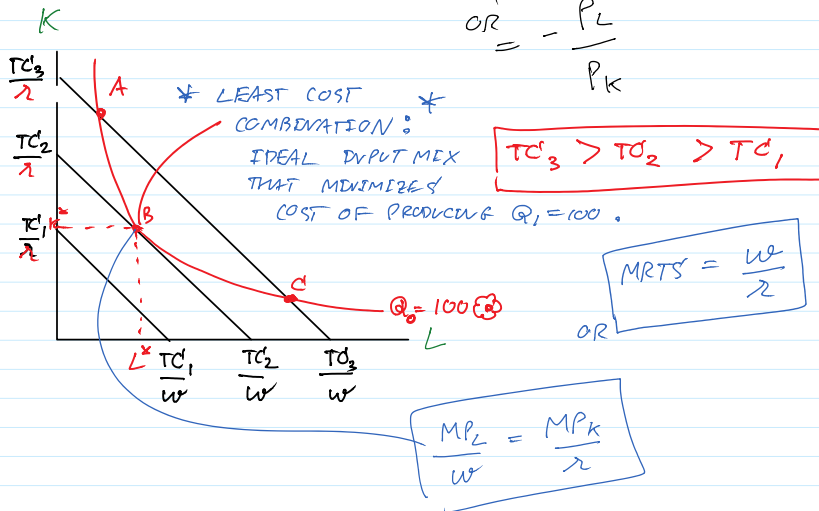 K
OR = - PL / PK
TC3 / r
A
* LEAST COST *
COMBINATION:
IDEAL INPUT MIX
THAT MINIMIZES
COST OF PRODUCING Q1 = 100.
TC3 > TC2 > TC1
TC2 / r
TC1 / r
K*
B
MRTS = w / r
C
Q0 = 100
OR
L
L*
TC1 / w
TC2 / w
TC3 / w
MPL / w = MPK / r